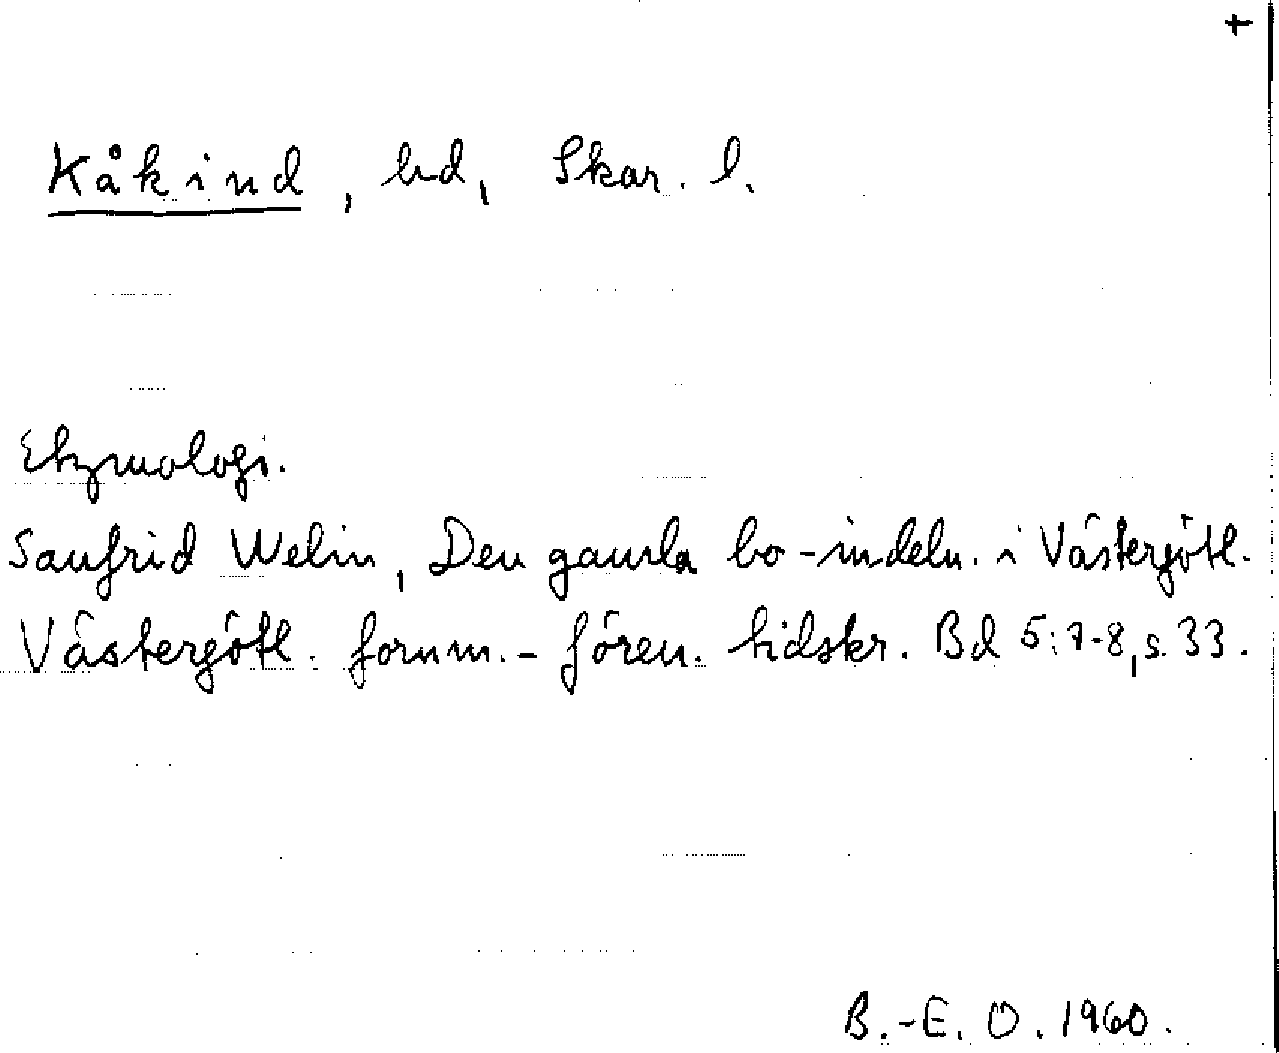 +
Kåkind, hd, Skar. l.
Etymologi.
Sanfrid Welin, Den gamla bo-indeln. i Västergötl.
Västergötl. fornm.-fören. tidskr. Bd 5:7-8, s. 33.
B.-E. O. 1960.